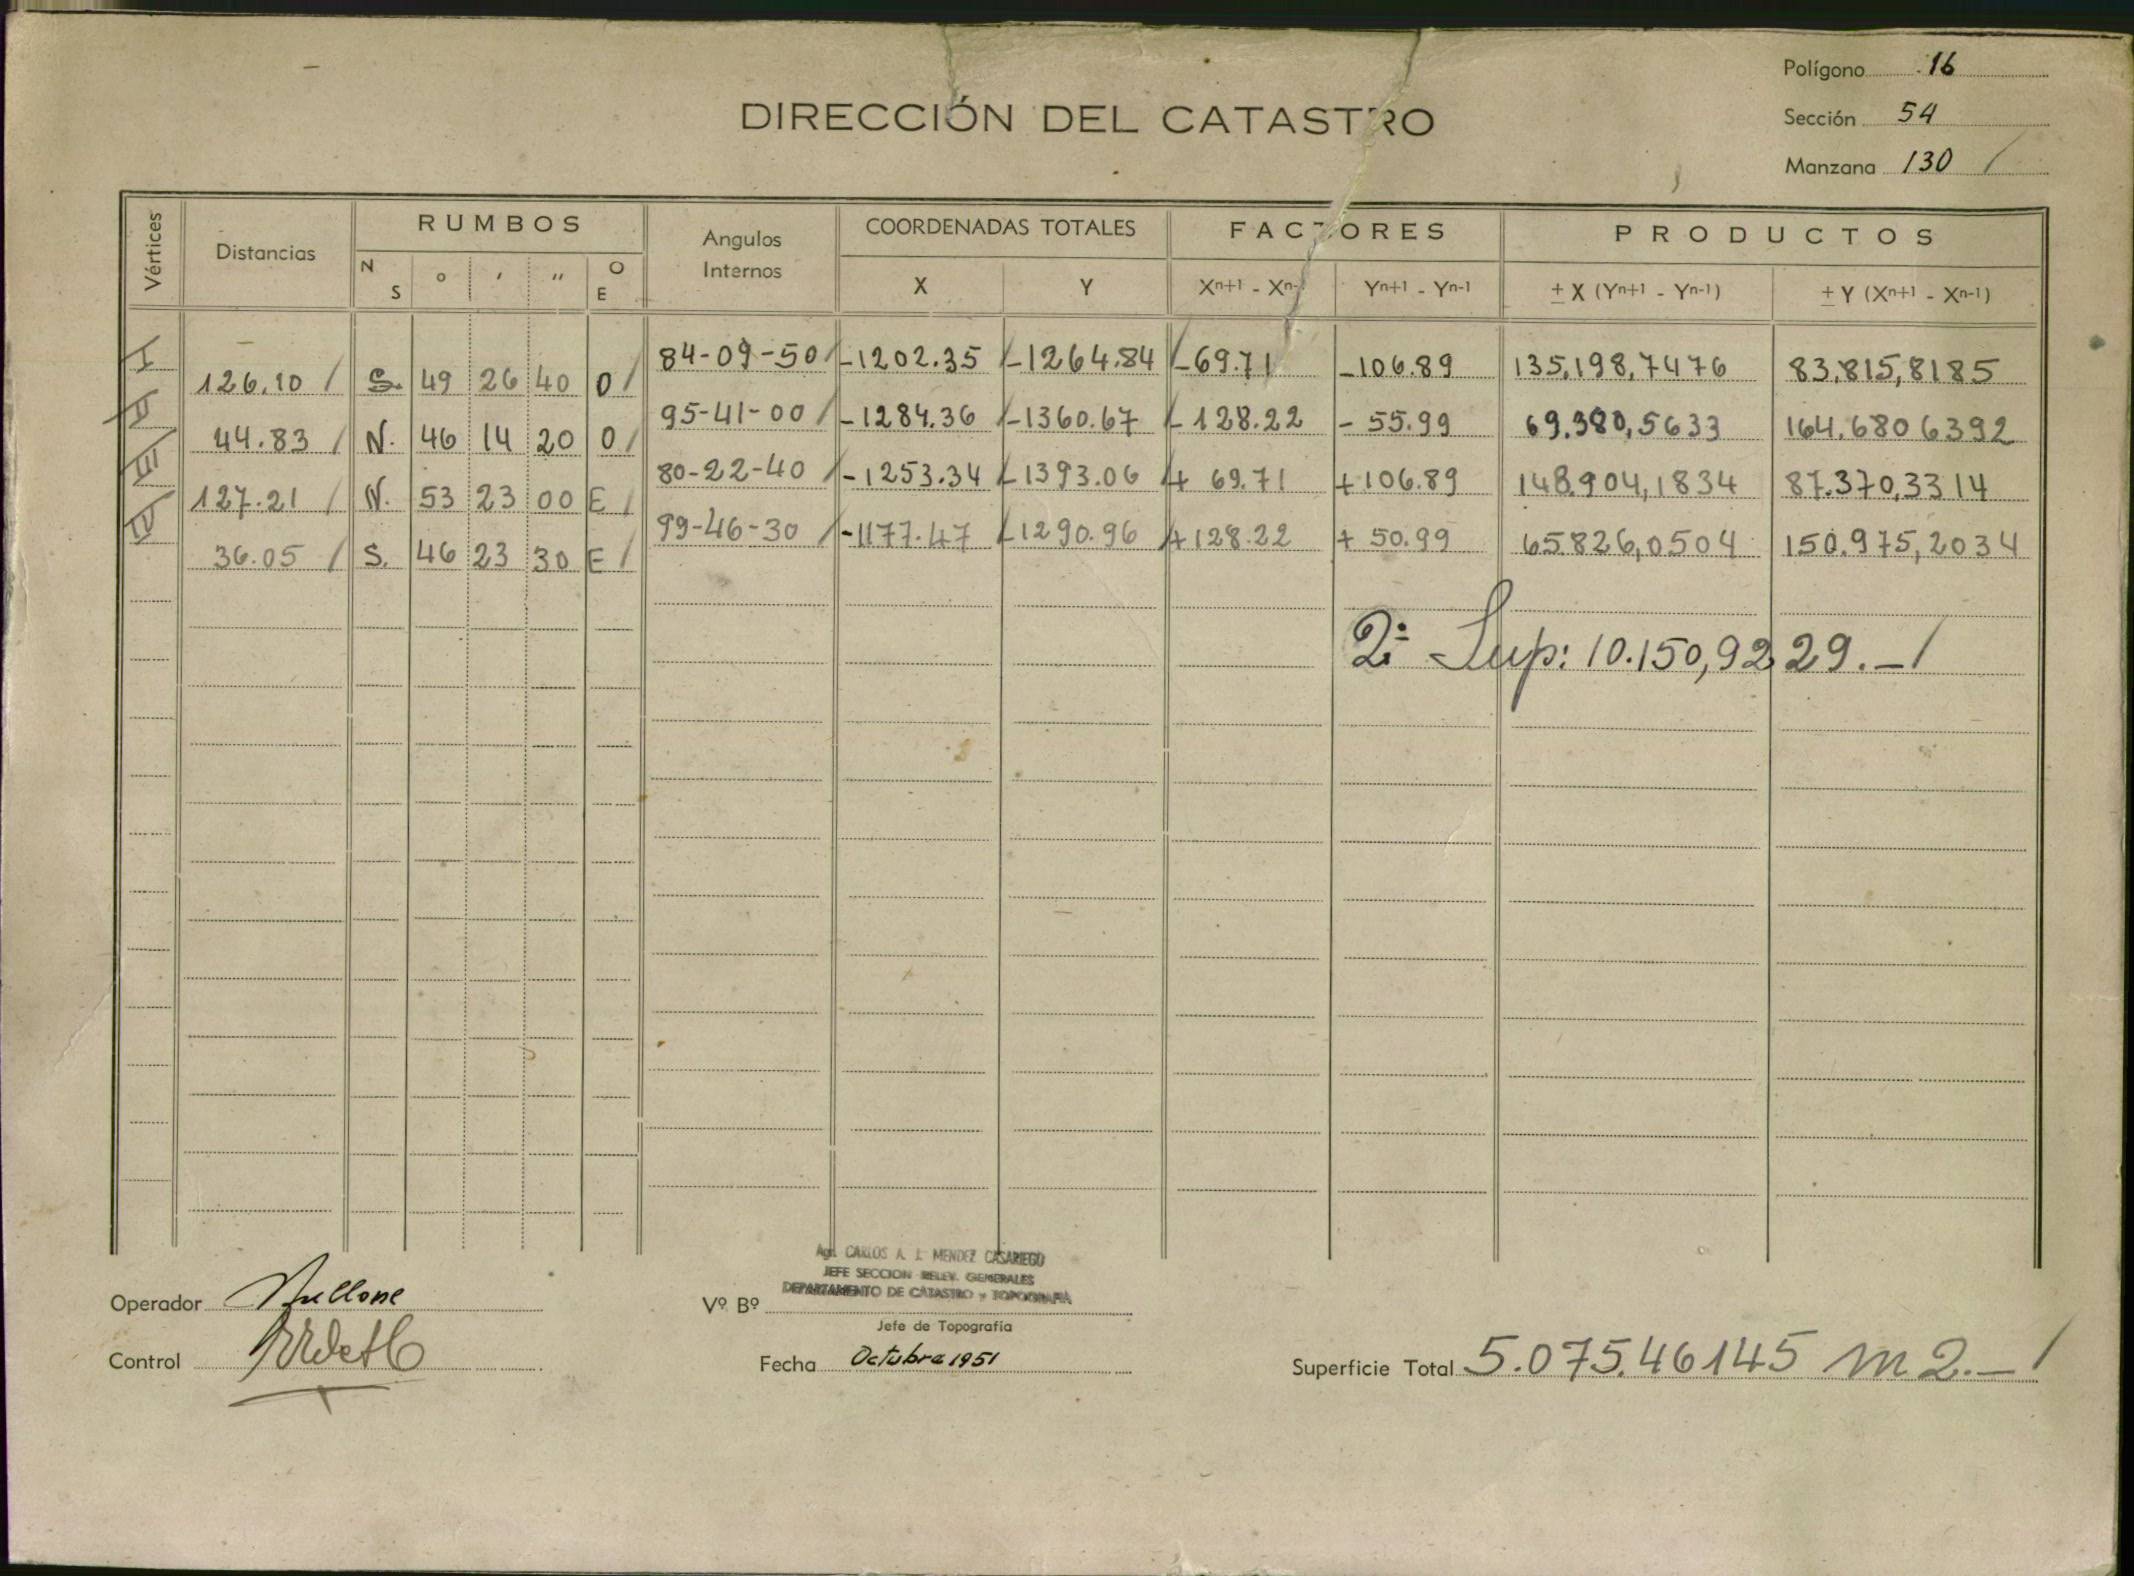 Polígono 16
DIRECCIÓN DEL CATASTRO
Sección 54
Manzana 130 /
Vértices Distancias RUMBOS Angulos Internos COORDENADAS TOTALES FACTORES PRODUCTOS
N S ° ' " O E X Y Xn+1 - Xn-1 Yn+1 - Yn-1 ± X (Yn+1 - Yn-1) ± Y (Xn+1 - Xn-1)
I 84-09-50 / -1202.35 / -1264.84 / -69.71 -106.89 135,198,7476 83.815,8185
126.10 / S. 49 26 40 O /
II 95-41-00 / -1284.36 / -1360.67 / -128.22 - 55.99 69.380,5633 164.680 6392
44.83 / N. 46 14 20 O /
III 80-22-40 / -1253.34 / -1393.06 / + 69.71 +106.89 148.904,1834 87.370,3314
127.21 / N. 53 23 00 E /
IV 99-46-30 / -1177.47 / -1290.96 / +128.22 + 50.99 65826,0504 150.975,2034
36.05 / S. 46 23 30 E /
2: Sup: 10.150,92 29.- /
Agr. CARLOS A. J. MENDEZ CASARIEGO
JEFE SECCION RELEV. GENERALES
DEPARTAMENTO DE CATASTRO y TOPOGRAFIA
Operador
Vº Bº
Jefe de Topografía
Control
Fecha Octubre 1951
Superficie Total 5.075.46145 m2.- /